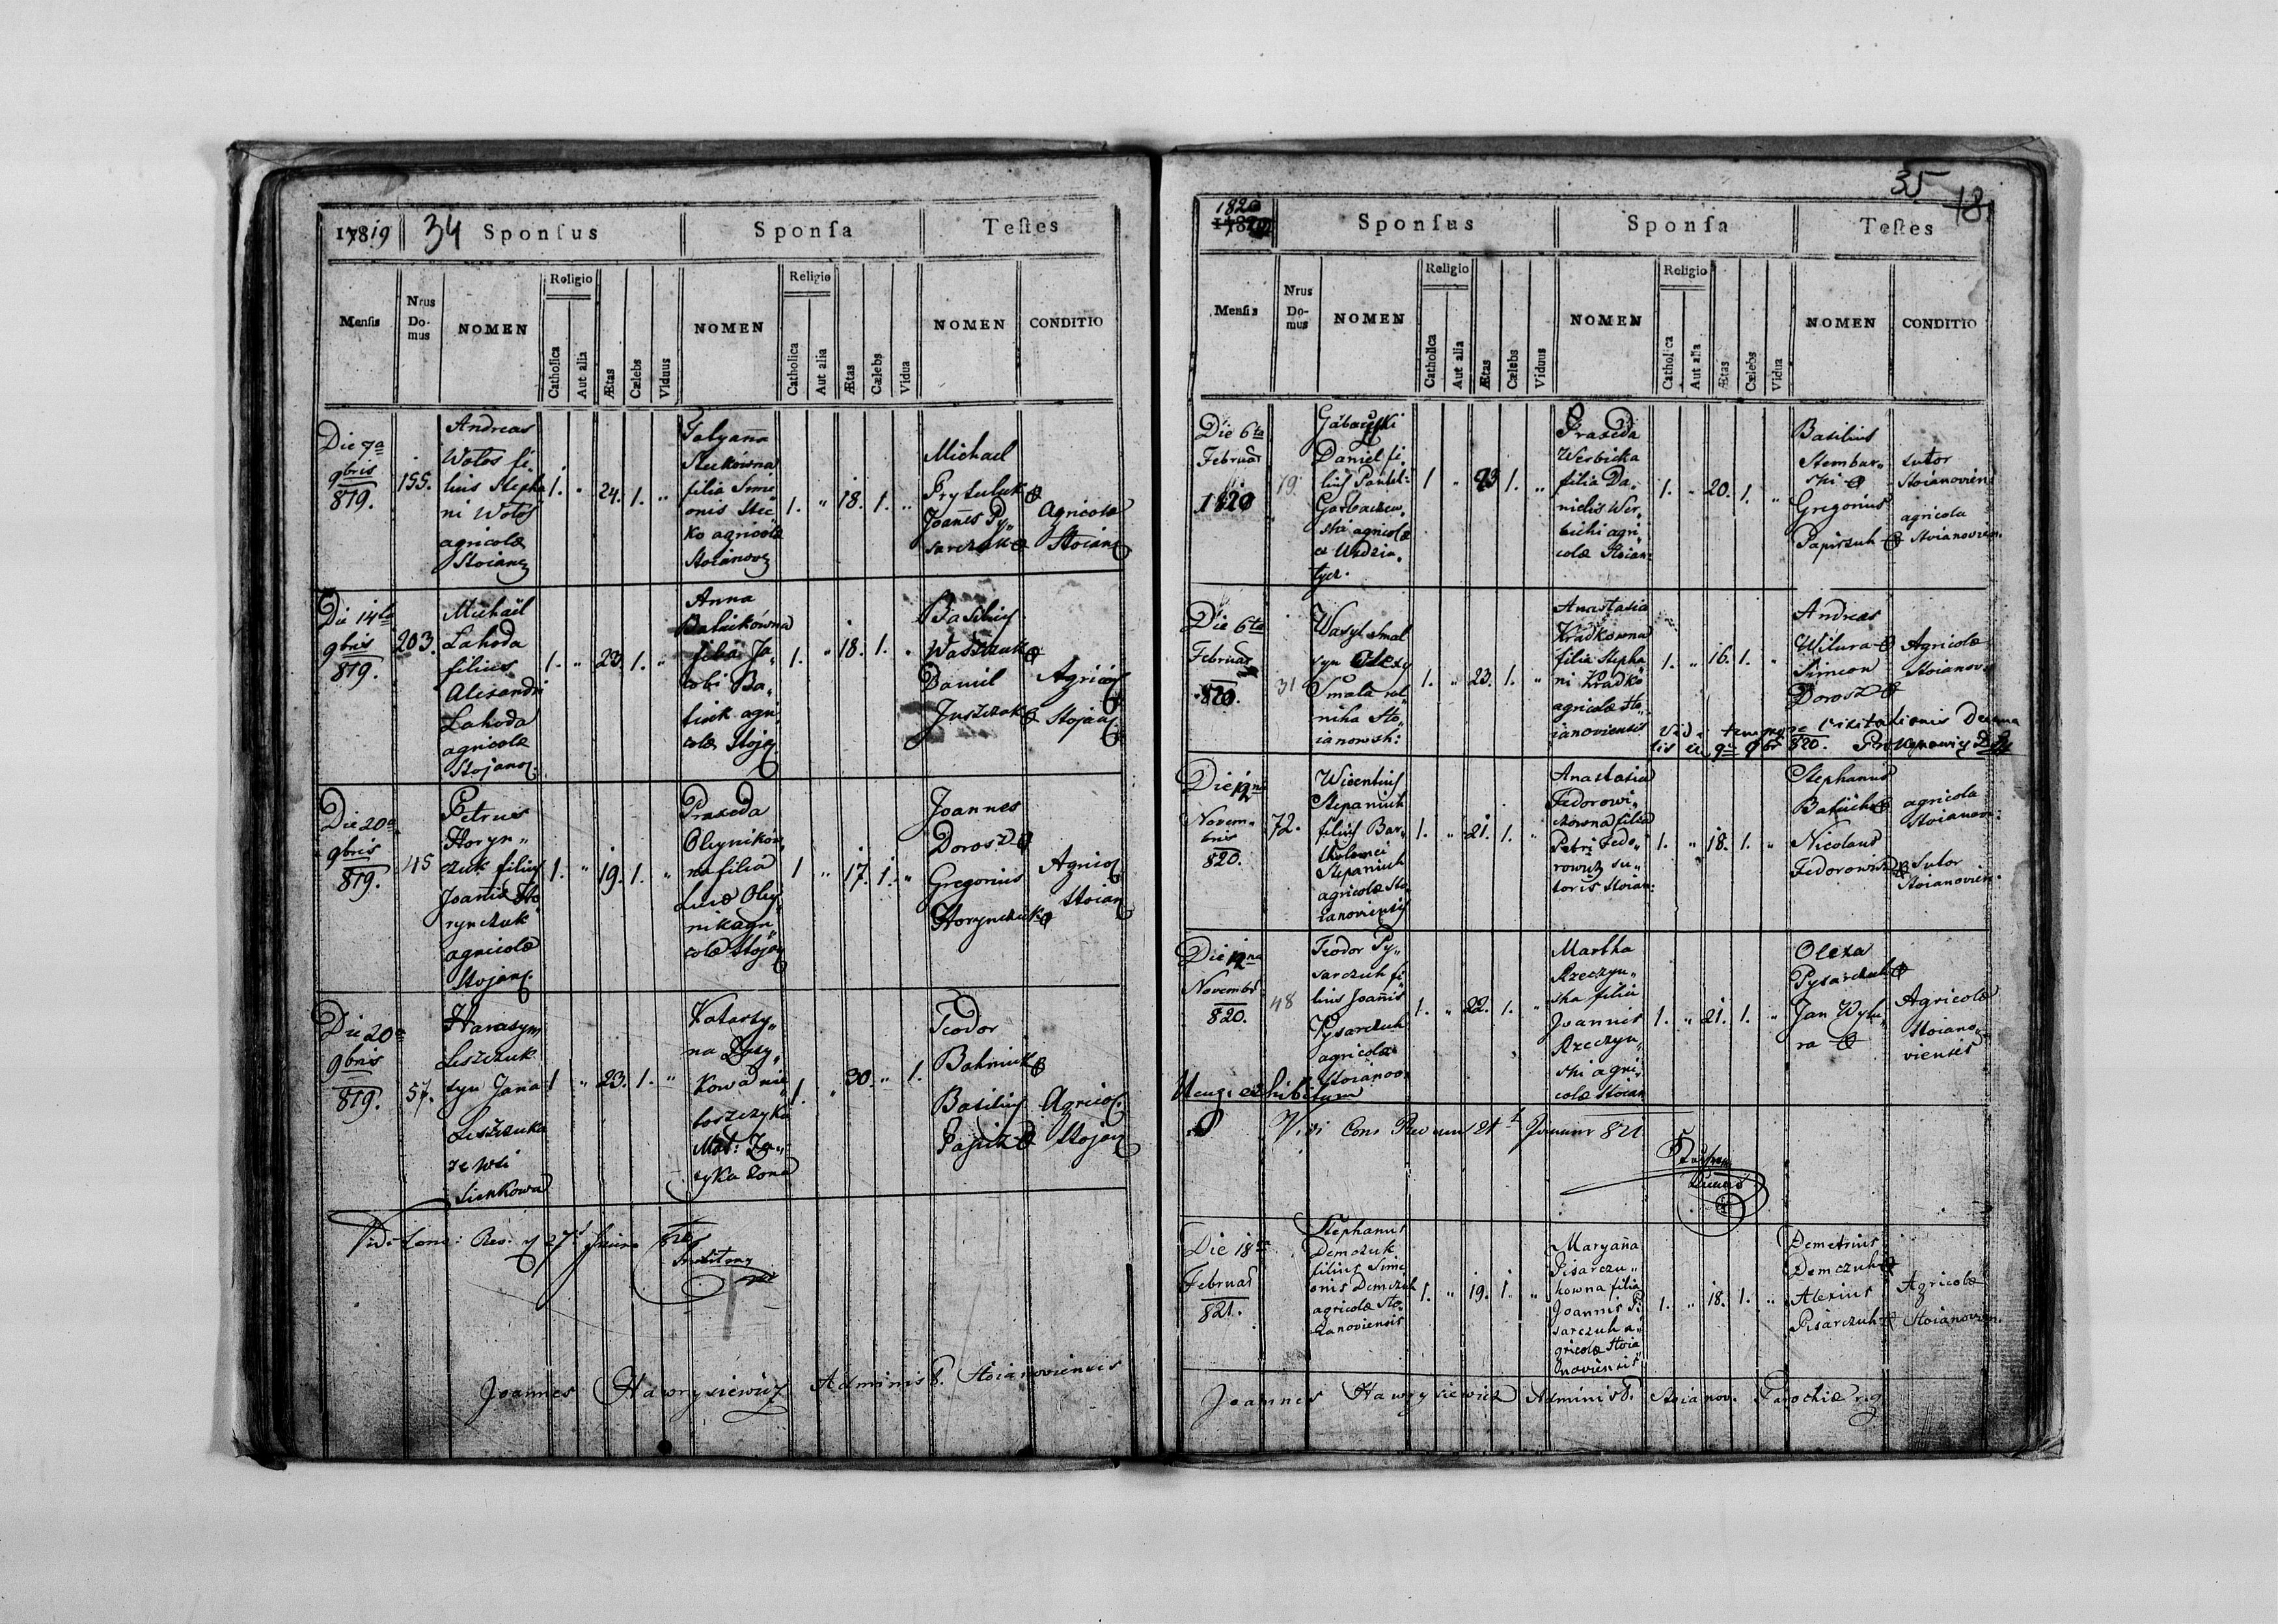 17819 34 Sponſus Sponſa Teſtes
Menſis Nrus Domus NOMEN Religio Catholica Aut alia Ætas Cælebs Viduus NOMEN Religio Catholica Aut alia Ætas Cælebs Vidua NOMEN CONDITIO
Die 7a
9bris
819.
155.
Andreas
Wolos fi„
lius Stepha
ni Wolos
agricolæ
Stoian
1. „ 24. 1. „
Stećkowna
filia Sime
onis Stec
ko agricolæ
Stoianov
1. „ 18. 1. „
Michael
Prytuluk
Joañes Py„
sarczuk
Agricolæ
Stoian
Die 14ta
9bris
819.
203.
Michaël
Lahoda
filius
Alexandri
Lahoda
agricolæ
Stojano
1. „ 23. 1. „
Anna
filia Ja„
cobi Ba„
agri
colæ Stoja
1. „ 18. 1. „
Basilius
Waszczuk
Daniil
Juszczak
Agricol
Stojan
Die 20a
9bris
819.
45
Petrus
Horyn„
czuk filius
Joanis Ho
rynczuk
agricolæ
Stojan
1. „ 19. 1. „
Praxeda
Oleynikow„
na filia
Lucæ Oley„
nik agri„
colæ Stojan
1 „ 17. 1. „
Joannes
Dorosz
Gregorius
Horynczuk
Agricol
Stoian
Die 20a
9bris
819.
57.
Harasym
Leszczuk
syn Jana
Leszczuka
ze wsi
Sienkowa
1 „ 23. 1. „
Katarzy„
na
kowa nie„
boszczyka
Mat:
żona
1. „ 30. „ 1.
Teodor
Bahniuk
Basilius
Agricol
Stojan
Joannes Hawrysiewicz Administ. Stoianoviensis
35 18.
1820 Sponſus Sponſa Teſtes
Menſis Nrus Domus NOMEN Religio Catholica Aut alia Ætas Cælebs Viduus NOMEN Religio Catholica Aut alia Ætas Cælebs Vidua NOMEN CONDITIO
Die 6ta
Februar
1820
79.
Daniel fi„
lius Pantel:
Garbaczew„
ski agricolæ
1 „ 23 1. „
Praxeda
Werbicka
filia Da„
nielis Wer„
bicki agri„
colæ Stoian:
1. „ 20. 1. „
Basilius
Stembar„
ski
Gregorius
Papirzuk
sutor
Stoianovien
agricola
Stoianovien.
Die 6ta
Februar
820.
31
Wasyl Smal
syn Olexy
Smala rol„
nika Sto„
ianowsk:
1. „ 23. 1. „
Anastasia
Kradkowna
filia Stepha
ni Kradko
agricolæ Sto„
ianoviensis
1. „ 16. 1. „
Andreas
Witura
Simeon
Dorosz
Agricolæ
Stoianov
Vidi tempore visitationis Decana
lis 820.
Die 12na
Novem„
bris
820.
72.
Wicentius
Stepaniuk
filius Bar„
tholomei
Stepaniuk
agricolæ Sto
ianoviensis
1. „ 21. 1. „
Anastasia
Fedorowi„
czowna filia
Petri Fedo„
rowicz su„
toris Stoian:
1. „ 18. 1. „
Stephanus
Nicolaus
Fedorowicz
agricola
Stoianov:
Sutor
Stoianovien.
Die 12na
Novembr
820.
48
Teodor Py„
sarczuk fi
lius Joañis
Pysarczuk
agricolæ
Stoianov
1. „ 22. 1. „
Martha
Rzeczyn„
ska filia
Joannis
Rzeczyn„
ski agri„
colæ Stoian
1. „ 21. 1. „
Olexa
Pysarczuk
Jan Wytu„
ra
Agricolæ
Stoiano„
viensis
exhibitum
Vidi 821
Die 18va
Februar
821.
Stephanus
Demczuk
filius Sime
onis Demczuk
agricolæ Sto„
ianoviensis
1. „ 19. 1. „
Maryaña
Pisarczu„
kowna filia
Joannis Pi
sarczuk a„
gricolæ Stoia
noviensis
1. „ 18. 1. „
Demetrius
Demczuk
Alexius
Pisarczuk
Agricolæ
Stoianovien.
Joannes Hawrysiewicz Administ. Stoianov. Parochiæ